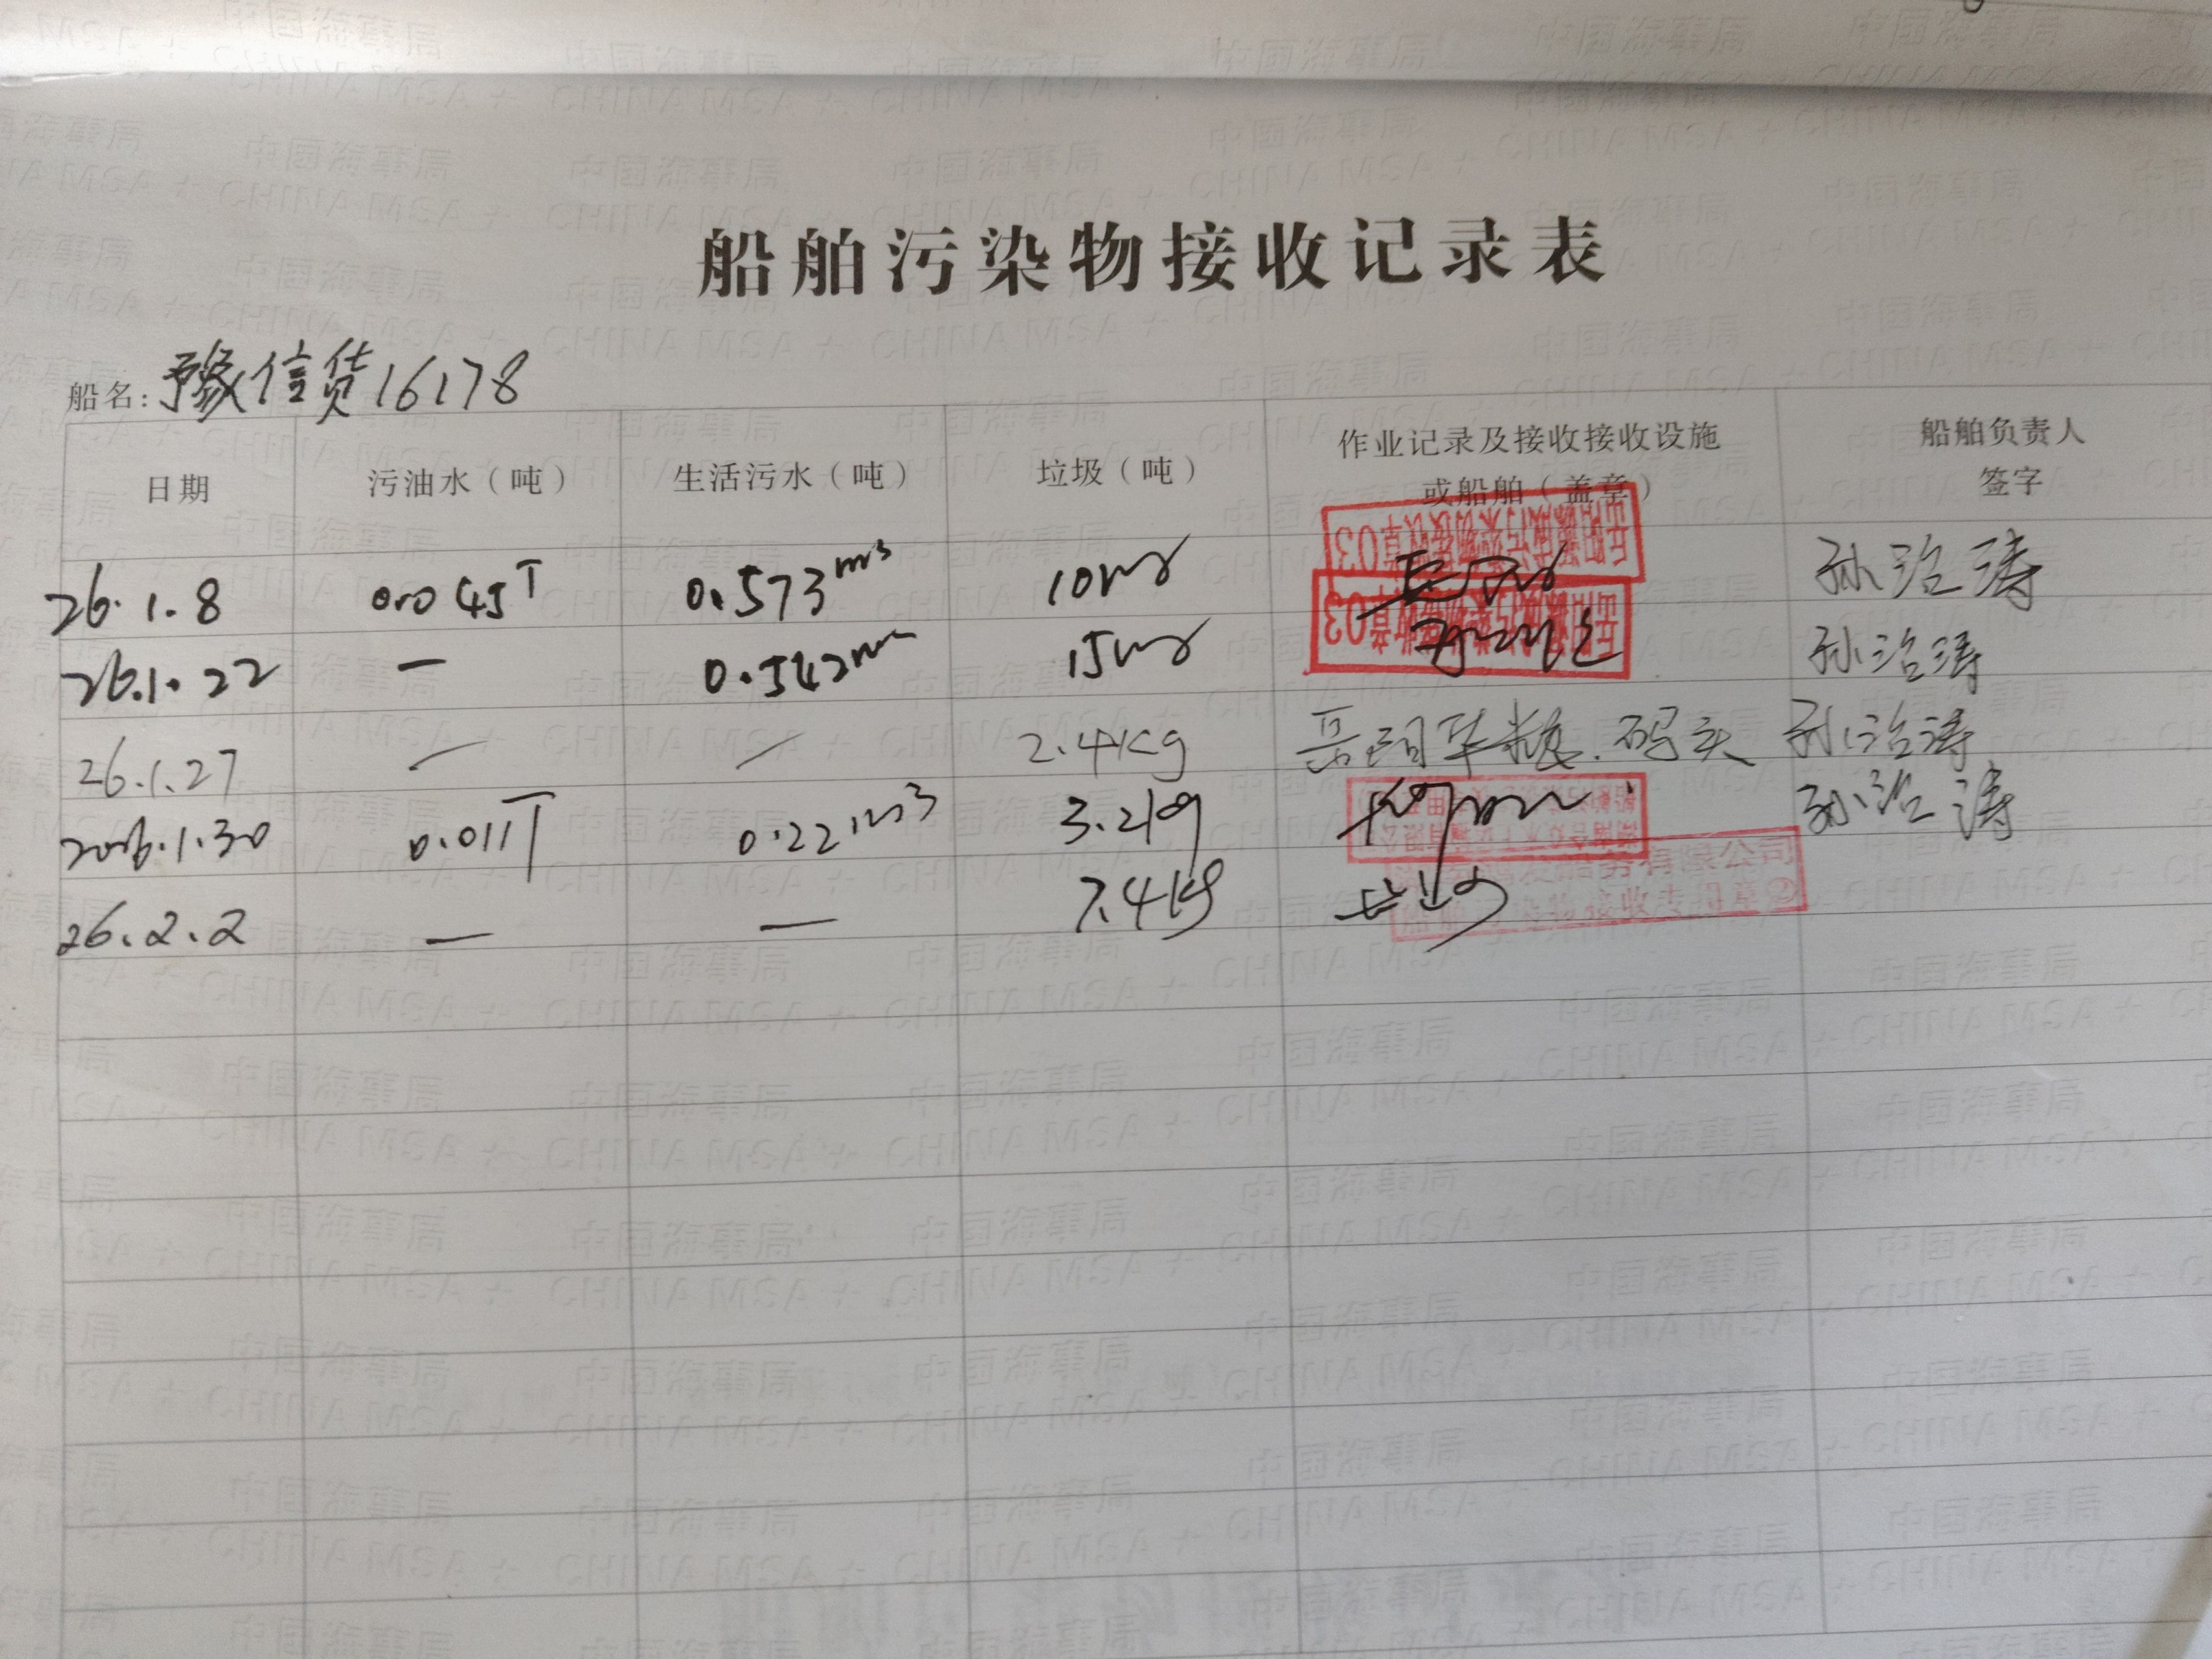 船舶污染物接收记录表
船名: 豫信货16178
日期 污油水（吨） 生活污水（吨） 垃圾（吨） 作业记录及接收接收设施或船舶（盖章） 船舶负责人签字
26.1.8 0.045T 0.573m³ 10kg 孙治涛
26.1.22 — 0.542m³ 15kg 孙治涛
26.1.27 — — 2.4Kg 岳阳华 码头 孙治涛
2026.1.30 0.011T 0.221m³ 3.2kg 孙治涛
26.2.2 — — 7.4kg
船务有限公司
物接收专用章②
中国海事局
CHINA MSA